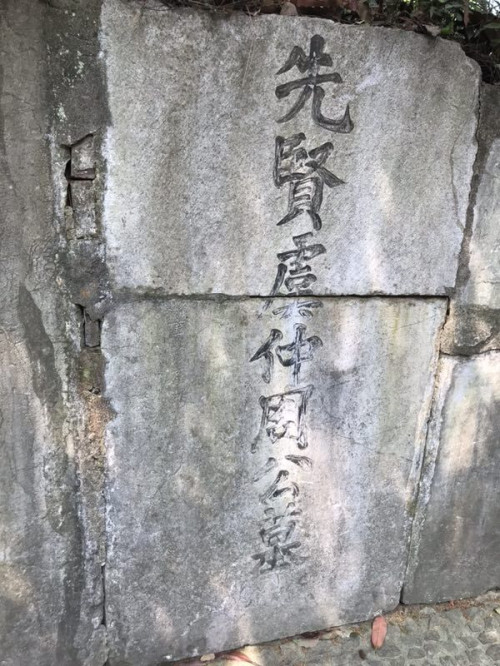 先賢虞仲周公墓